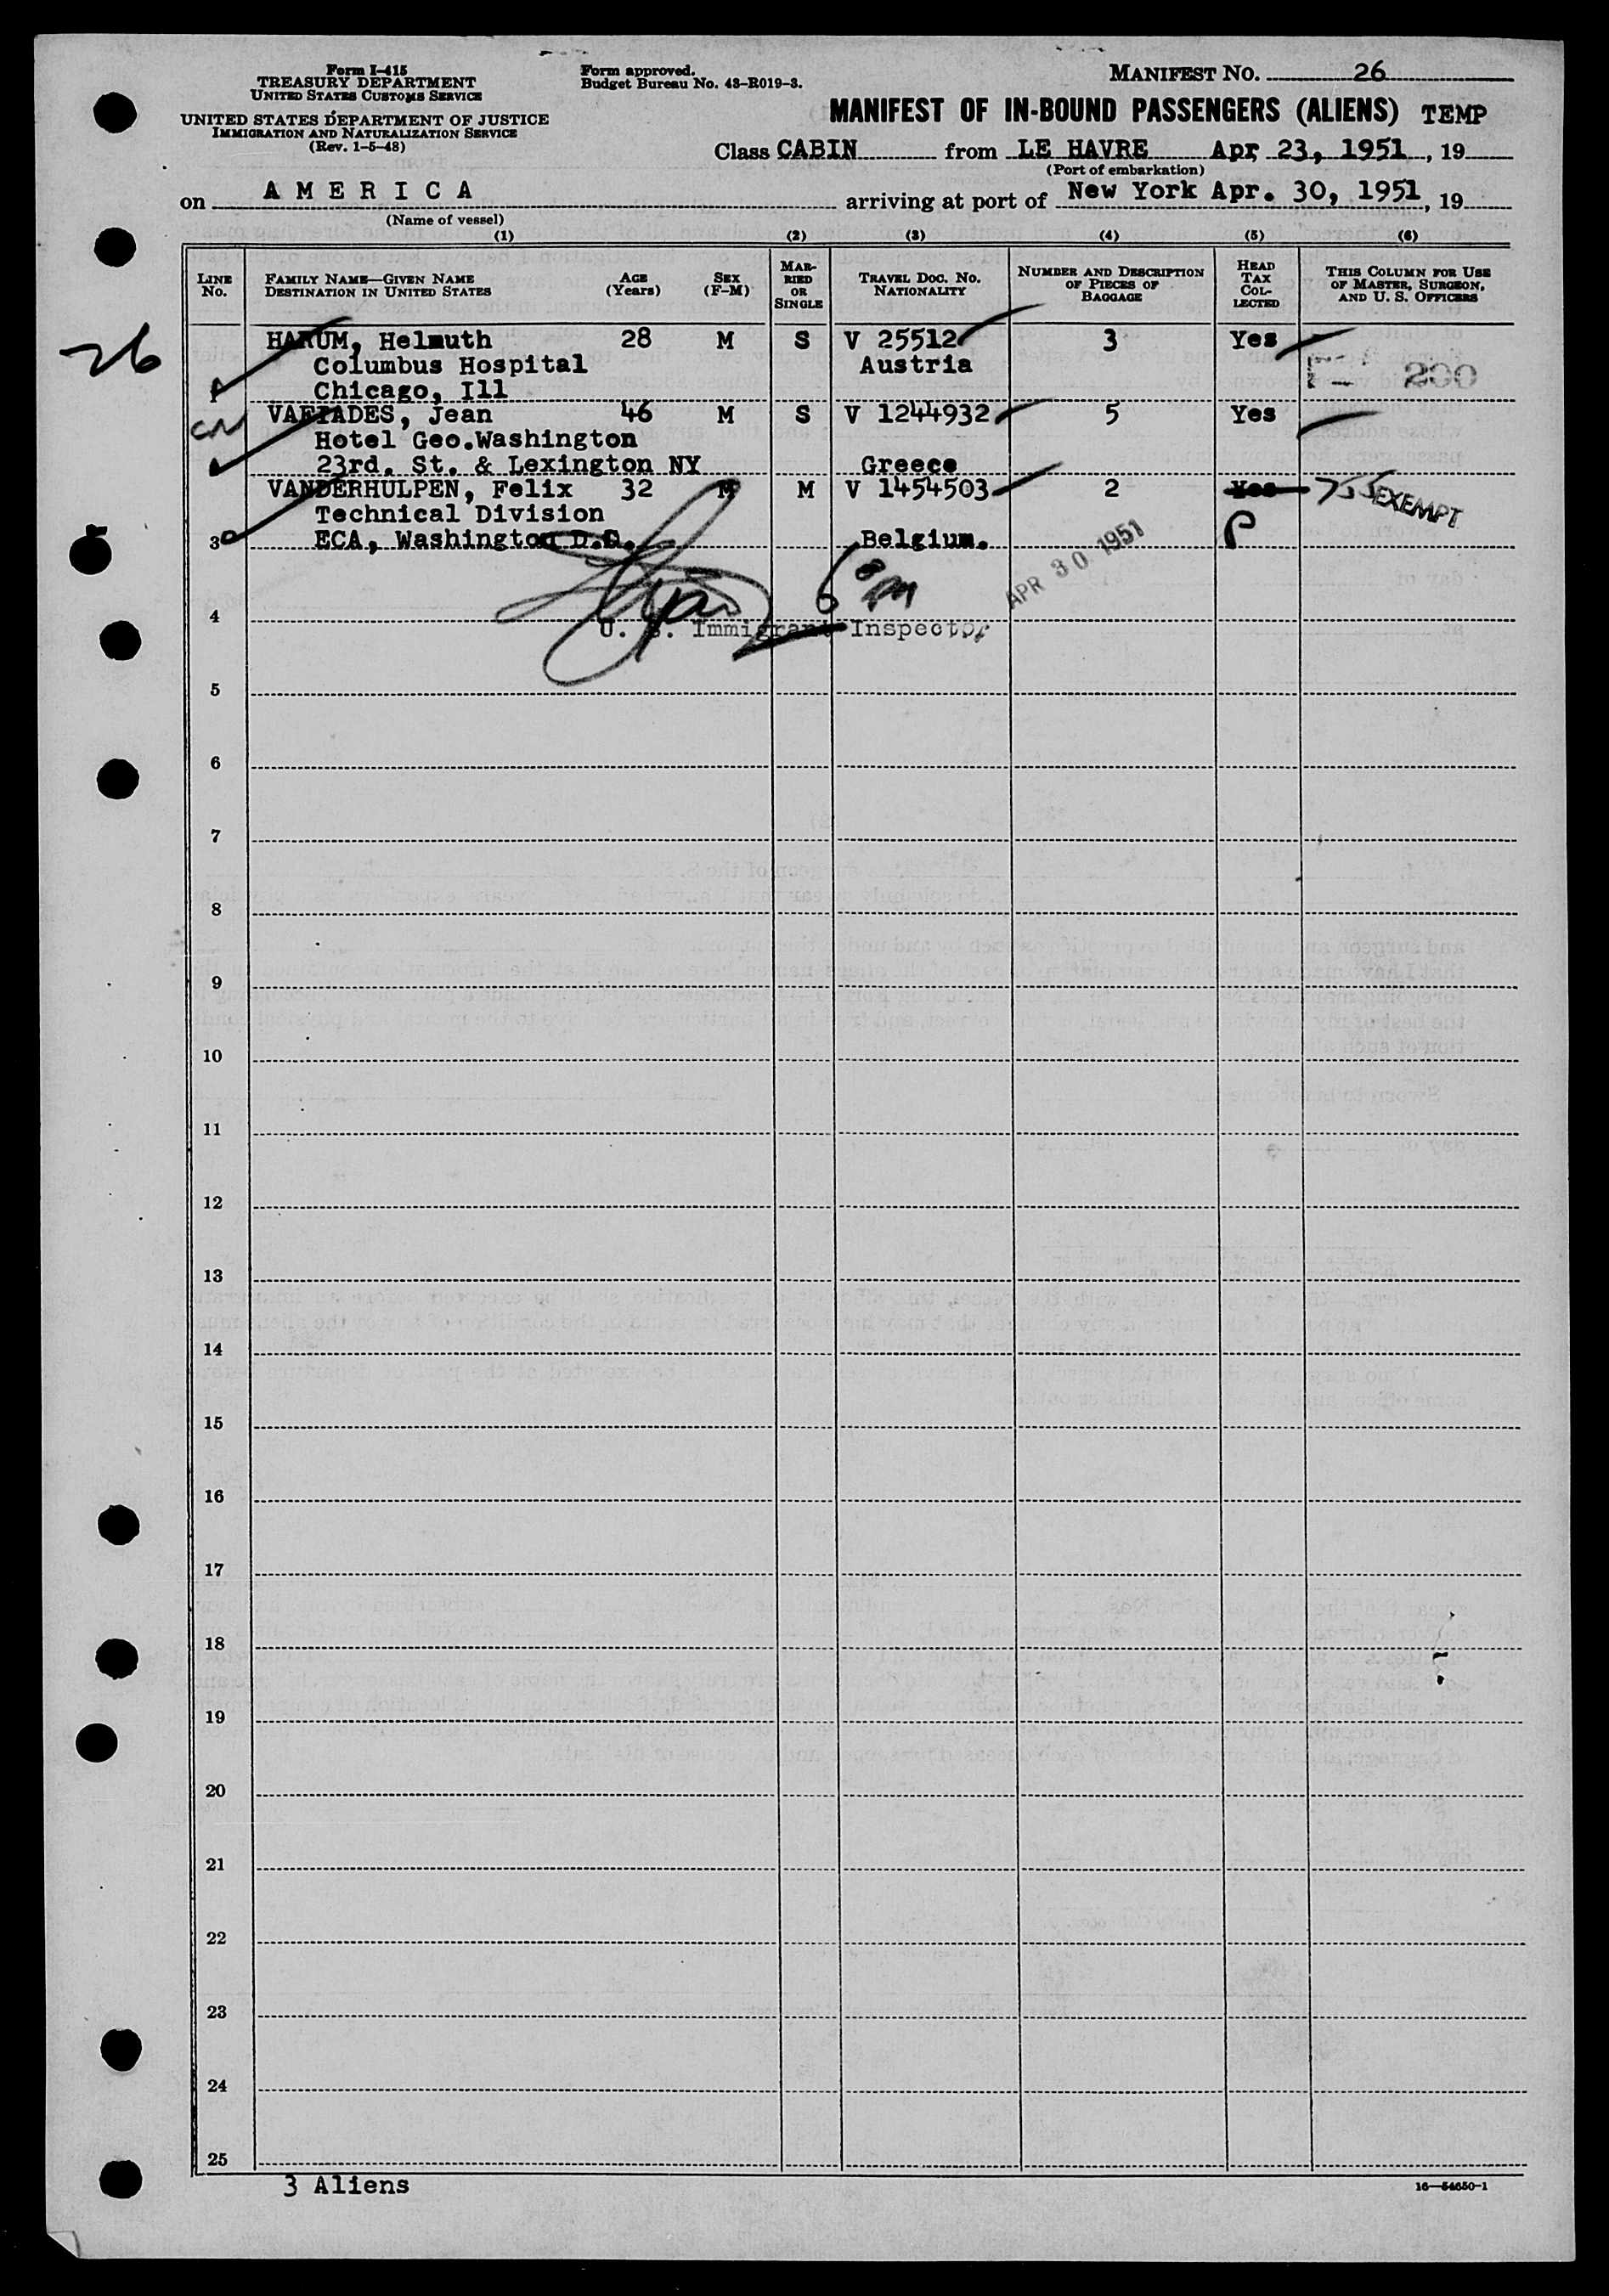 Form I-415
TREASURY DEPARTMENT
UNITED STATES CUSTOMS SERVICE
UNITED STATES DEPARTMENT OF JUSTICE
IMMIGRATION AND NATURALIZATION SERVICE
(Rev. 1-5-48)
Form approved.
Budget Bureau No. 43-R019-3.
MANIFEST NO. 26
MANIFEST OF IN-BOUND PASSENGERS (ALIENS) TEMP
Class CABIN from LE HAVRE Apr 23, 1951, 19
(Port of embarkation)
on A M E R I C A arriving at port of New York Apr. 30, 1951, 19
(Name of vessel)
(1) (2) (3) (4) (5) (6)
LINE No.
FAMILY NAME—GIVEN NAME
DESTINATION IN UNITED STATES
AGE (Years)
SEX (F-M)
MARRIED OR SINGLE
TRAVEL DOC. NO.
NATIONALITY
NUMBER AND DESCRIPTION OF PIECES OF BAGGAGE
HEAD TAX COLLECTED
THIS COLUMN FOR USE OF MASTER, SURGEON, AND U. S. OFFICERS
26
HARUM, Helmuth 28 M S V 25512 3 Yes
Columbus Hospital Austria 200
Chicago, Ill
VAFIADES, Jean 46 M S V 1244932 5 Yes
Hotel Geo.Washington
23rd. St. & Lexington NY Greece
VANDERHULPEN, Felix 32 M M V 1454503 2 Yes EXEMPT
Technical Division
3 ECA, Washington D.C. Belgium. P
APR 30 1951
4 U. S. Immigrant Inspector
5
6
7
8
9
10
11
12
13
14
15
16
17
18
19
20
21
22
23
24
25
3 Aliens
16—54650-1